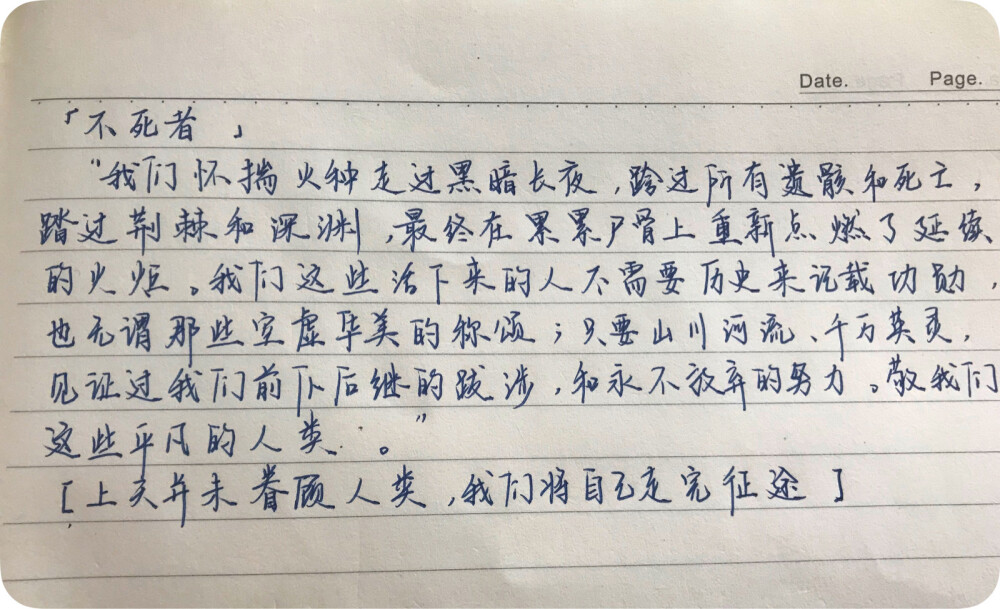 Date. Page.
「不死者」
“我们怀揣火种走过黑暗长夜，跨过所有遗骸和死亡，
踏过荆棘和深渊，最终在累累尸骨上重新点燃了延续
的火炬。我们这些活下来的人不需要历史来记载功勋，
也无谓那些空虚华美的称颂；只要山川河流、千万英灵，
见证过我们前仆后继的跋涉，和永不放弃的努力。敬我们
这些平凡的人类。”
[上天并未眷顾人类，我们将自己走完征途]